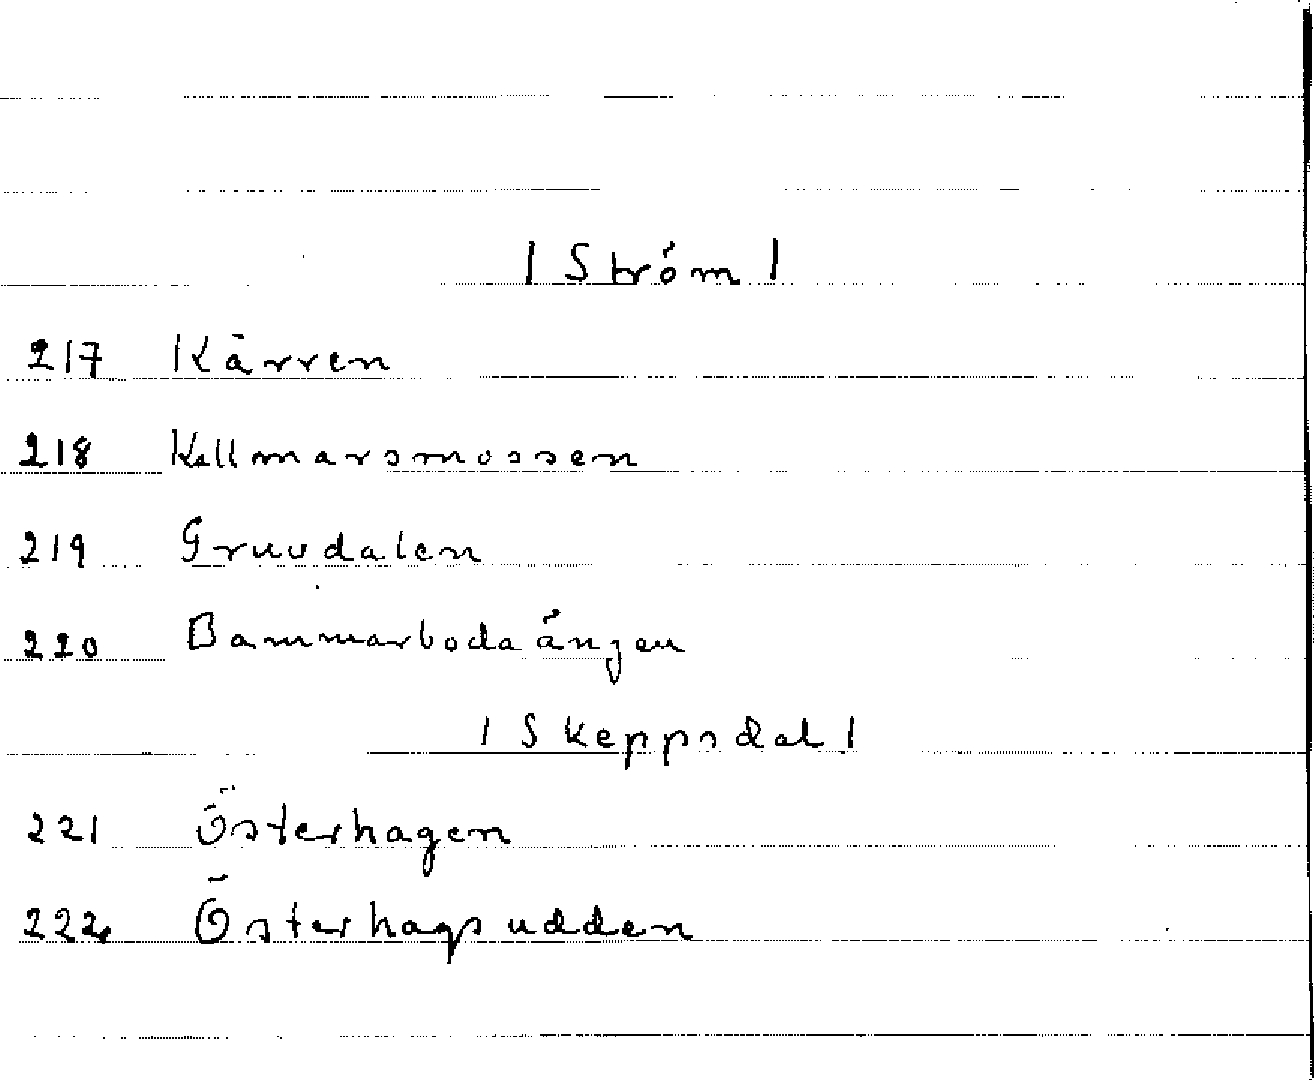 | Ström |
217 Kärren
218 Kallmarsmossen
219 Gruvdalen
220 Bammarbodaängen
| Skeppsdal |
221 Österhagen
222 Österhagsudden